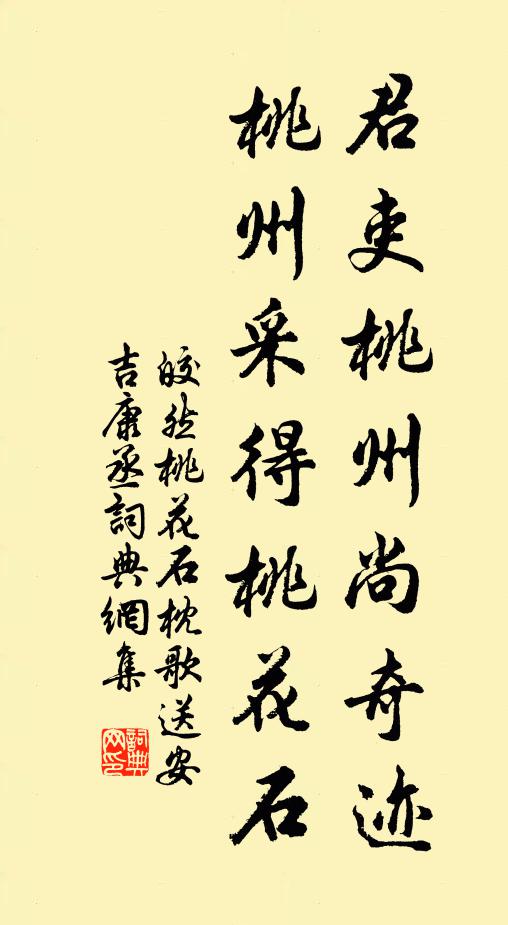 君吏桃州尚奇迹
桃州采得桃花石
皎然桃花石枕歌送安
吉康丞詞典網集
詞典網印